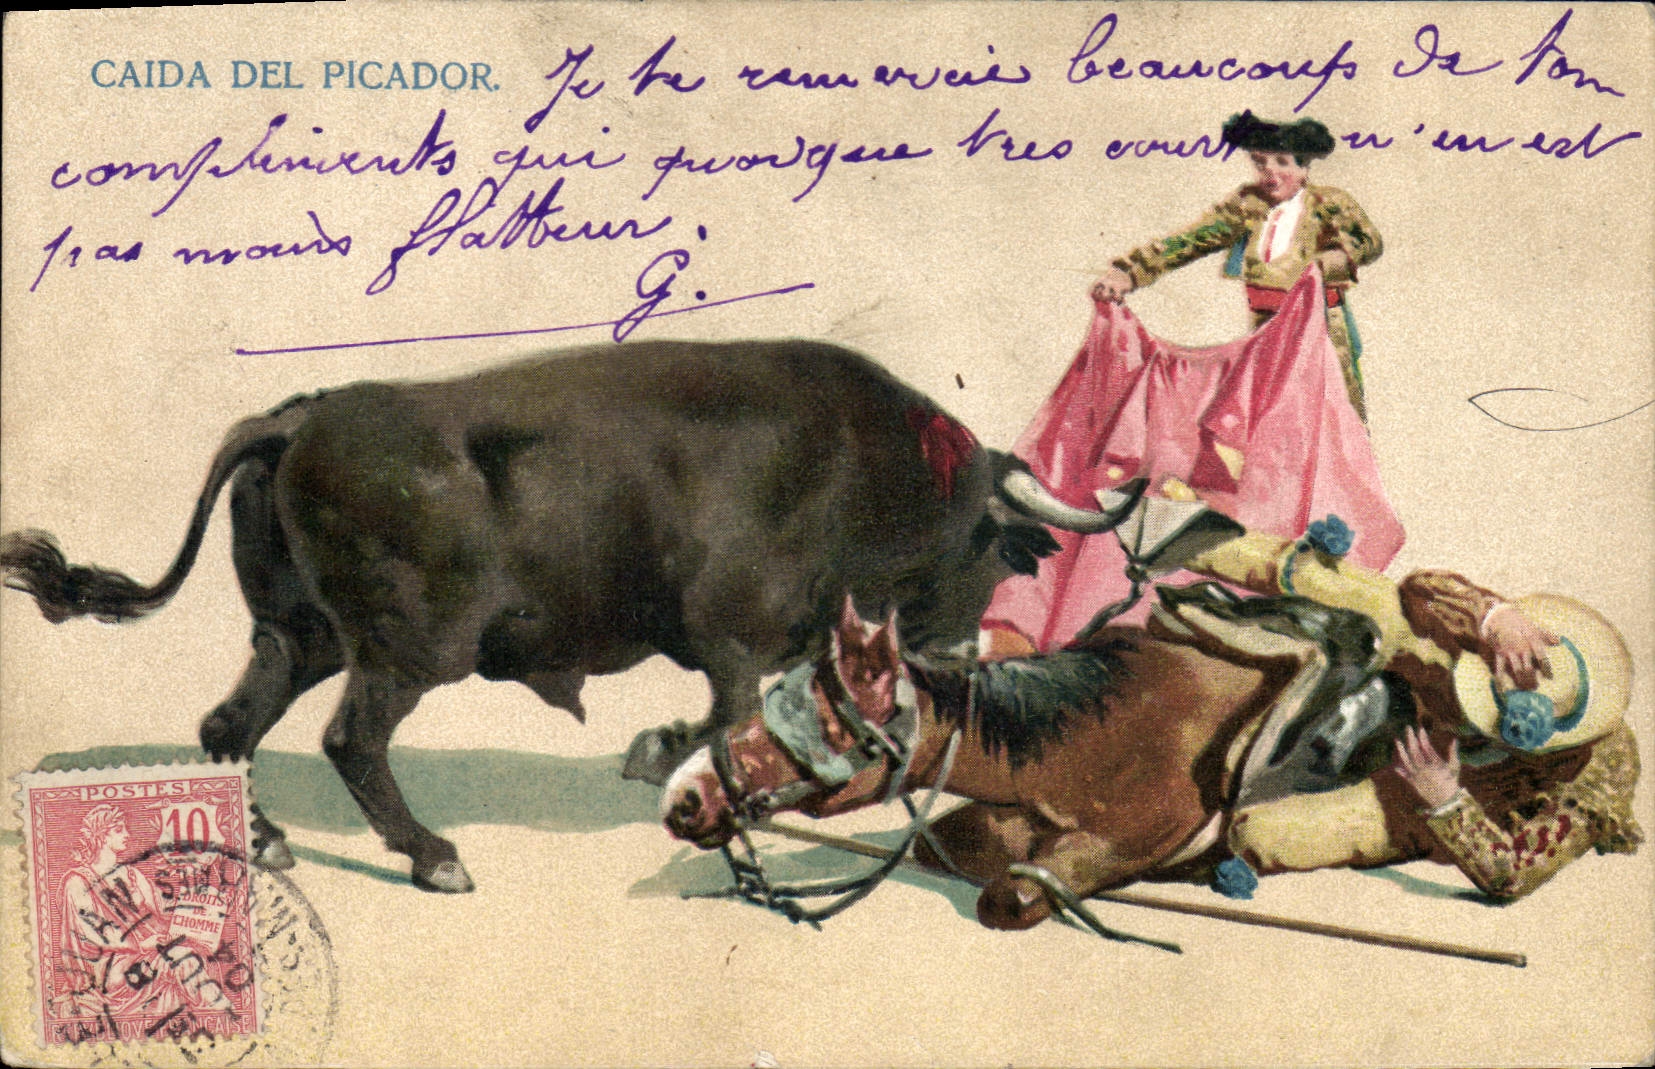 CAIDA DEL PICADOR. Je te remercie beaucoup de ton
compliments qui quoique tres court n'en est
pas moins flatteur.
G.
POSTES
10
DROITS
DE
L'HOMME
AOUT
04